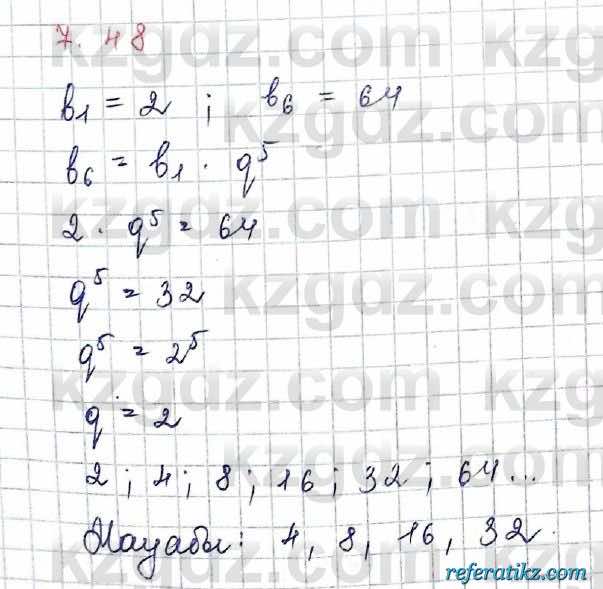 7.48
b₁ = 2 ; b₆ = 64
b₆ = b₁ · q⁵
2 · q⁵ = 64
q⁵ = 32
q⁵ = 2⁵
q = 2
2 ; 4 ; 8 ; 16 ; 32 ; 64...
Жауабы: 4, 8, 16, 32.
kzgdz.com
referatikz.com